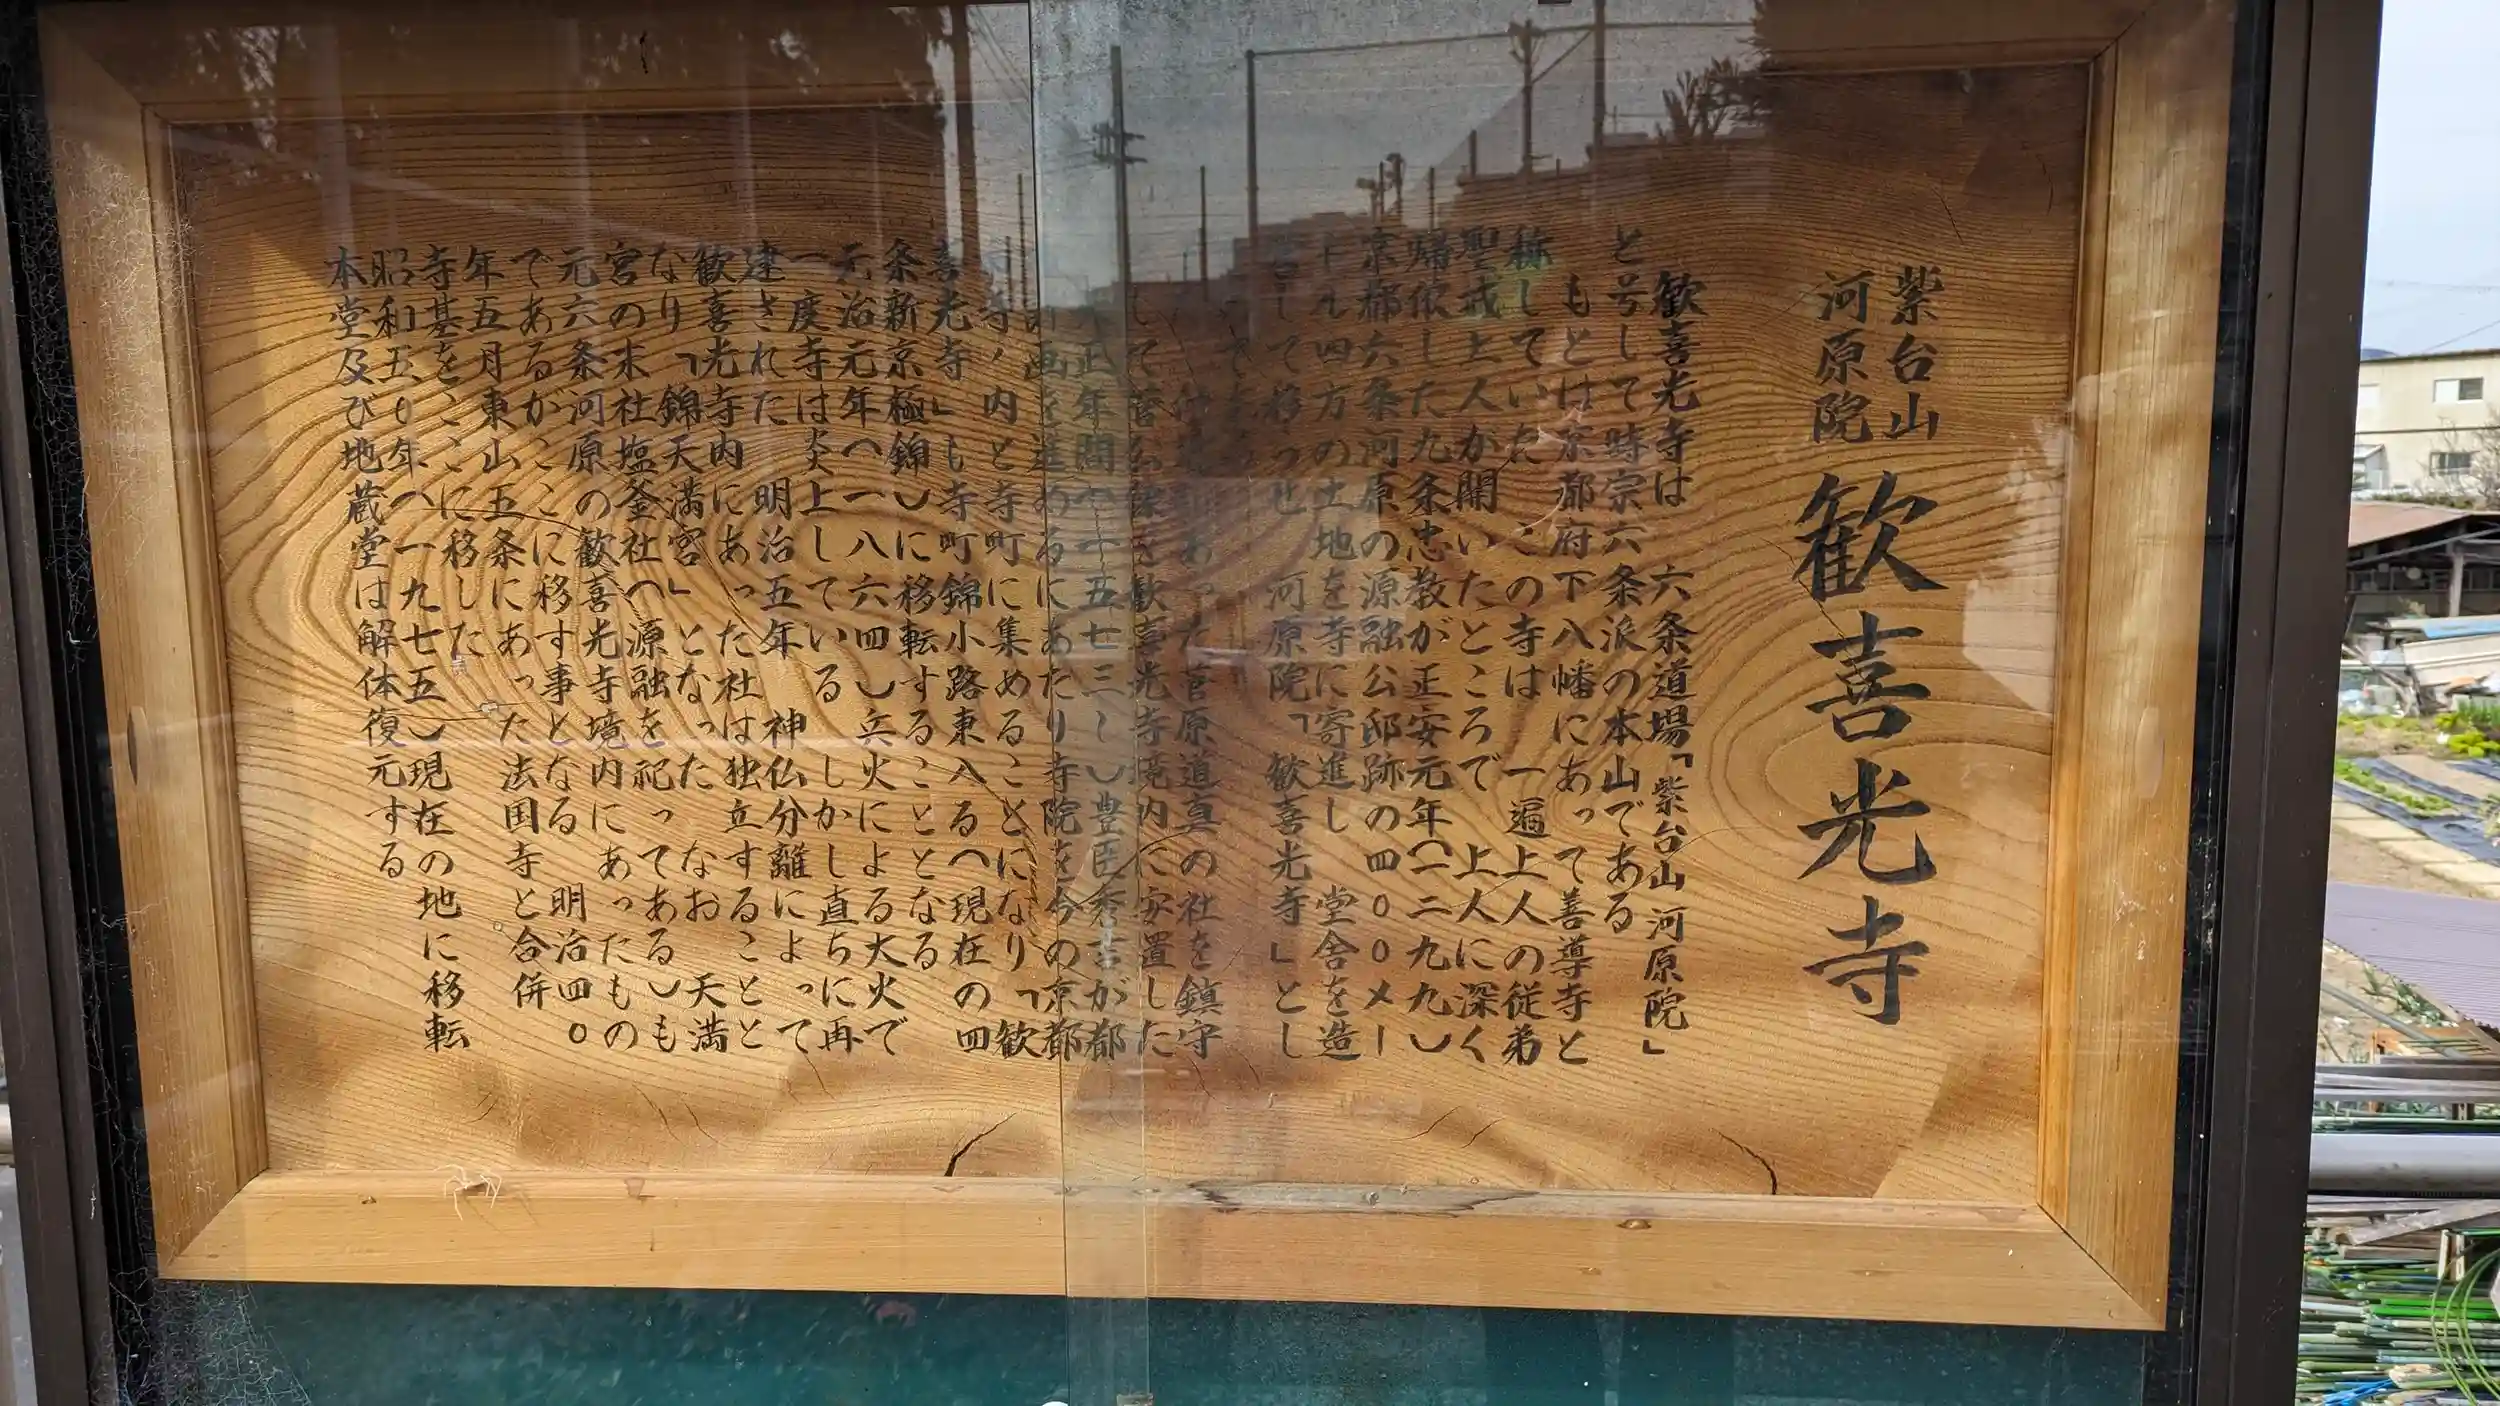 紫台山
河原院
歓喜光寺
歓喜光寺は 六条道場「紫台山 河原院」
と号して時宗六条派の本山である
もとは京都府下八幡にあって善導寺と
称していた この寺は 一遍上人の従弟
聖戒上人が開いたところで 上人に深く
帰依した九条忠教が正安元年(一二九九)
京都六条河原の源融公邸跡の四〇〇メー
トル四方の土地を寺に寄進し 堂舎を造
して移っせ 河原院「歓喜光寺」とし
あった菅原道真の社を鎮守
して 歓喜光寺境内に安置した
正年間 一五七三〜)豊臣秀吉が都
計画を進めるにあたり寺院を今の京都
寺ノ内と寺町に集めることになり「歓
喜光寺」も寺町錦小路東入る(現在の四
条新京極錦)に移転することとなる
元治元年(一八六四)兵火による大火で
一度寺は炎上している しかし直ちに再
建された 明治五年 神仏分離によって
歓喜光寺内にあった社は独立することと
なり「錦天満宮」となった なお 天満
宮の末社塩釜社(源融を祀ってある)も
元六条河原の歓喜光寺境内にあったもの
であるがここに移す事となる 明治四〇
年五月東山五条にあった法国寺と合併
寺基をここに移した
昭和五〇年(一九七五)現在の地に移転
本堂及び地蔵堂は解体復元する